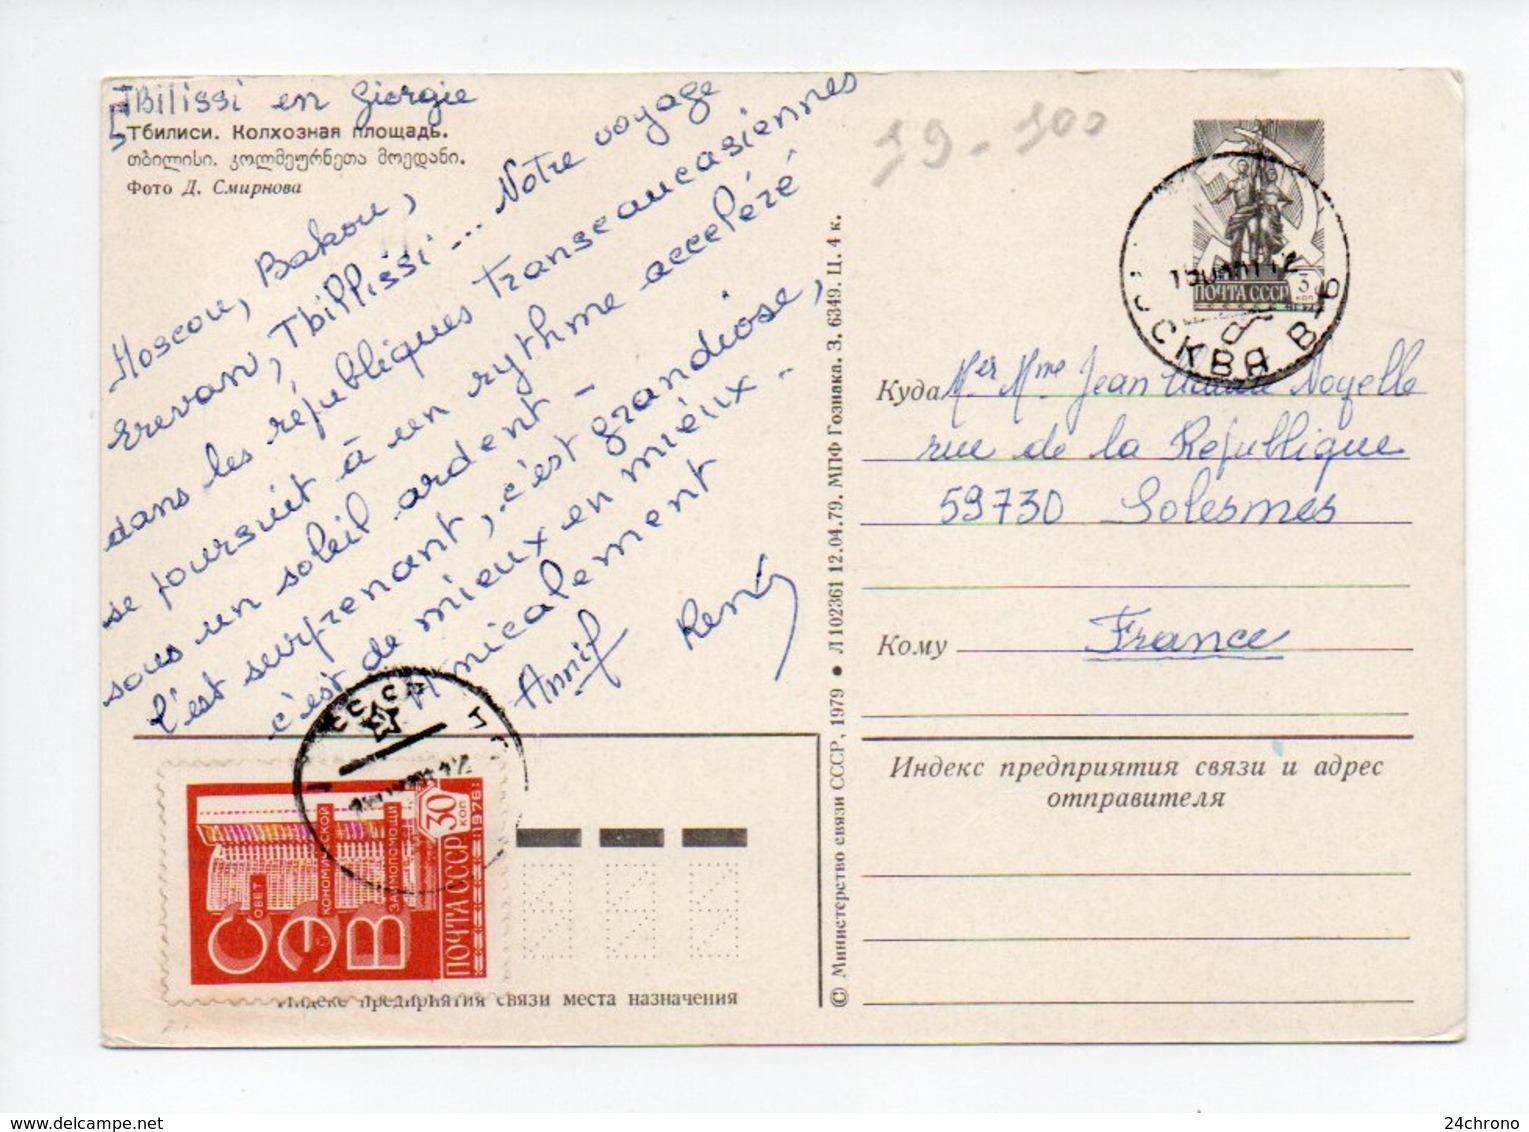 TBilissi en Giorgie
Тбилиси. Колхозная площадь.
თბილისი. კოლმეურნეთა მოედანი.
Фото Д. Смирнова
Moscou, Bakou,
Erevan, Tbillissi ... Notre voyage
dans les républiques Transcaucasiennes
se poursuit à un rythme acceléré
sous un soleil ardent -
l'est surprenant, c'est grandiose,
c'est de mieux en mieux -
Amicalement
Annie René
19-100
ПОЧТА СССР
3
коп
МОСКВА
Куда Mer Mme Jean Noyelle
rue de la République
59730 Solesmes
Кому France
Индекс предприятия связи и адрес
отправителя
© Министерство связи СССР, 1979 • Л 102361 12.04.79. МПФ Гознака. З. 6349. Ц. 4 к.
СОВЕТ
ЭКОНОМИЧЕСКОЙ
ВЗАИМОПОМОЩИ
ПОЧТА СССР 30 КОП
1976
Индекс предприятия связи места назначения
24chrono